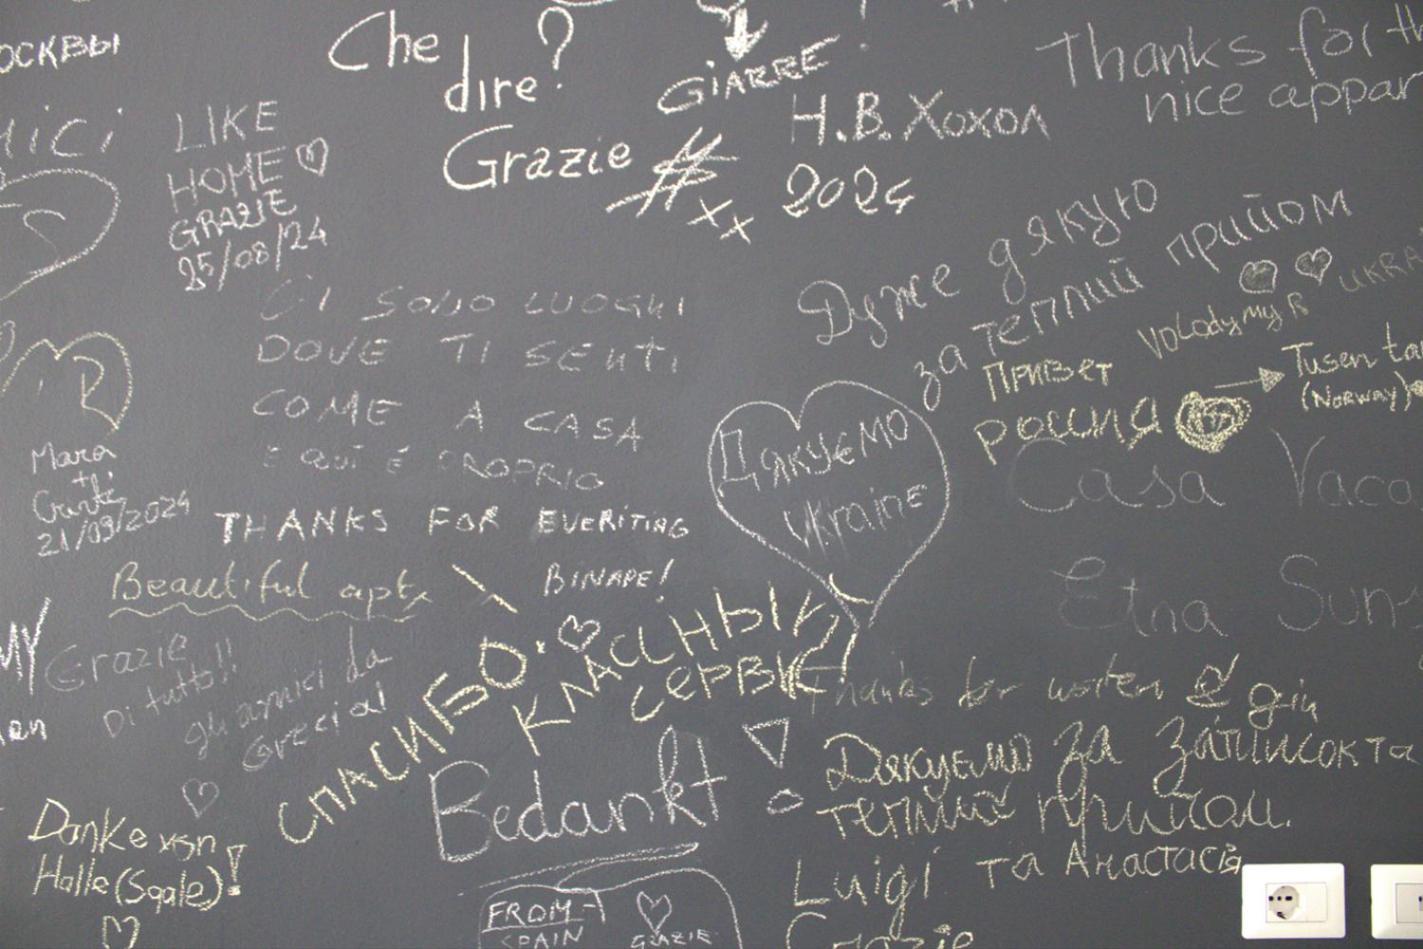 ОСКВЫ
Che
dire?
Grazie
GIARRE
Н.В. Хохол
2024
Thanks for th
nice appar
LIKE
HOME
GRAZIE
25/08/24
CI SONO LUOGHI
DOVE TI SENTI
COME A CASA
E QUI È PROPRIO
THANKS FOR EVERITING
BINAPE!
Дуже дякую
за теплий прийом
Volodymyr
UKRA
Привет
россия
Tusen ta
(NORWAY)
Дякуємо
Ukraine
Casa Vaca
Etna Sun
Mara
21/09/2024
Beautiful apt
MY
Grazie
Di tutto!!
gli amici da
Grecia!
СПАСИБО
КЛАССНЫЙ
СЕРВИС
Thanks for water & gin
Bedankt
Дякуємо за затишок та
теплий прийом.
Luigi та Анастасія
Grazie
Danke von
Halle (Saale)!
FROM
SPAIN
GRAZIE